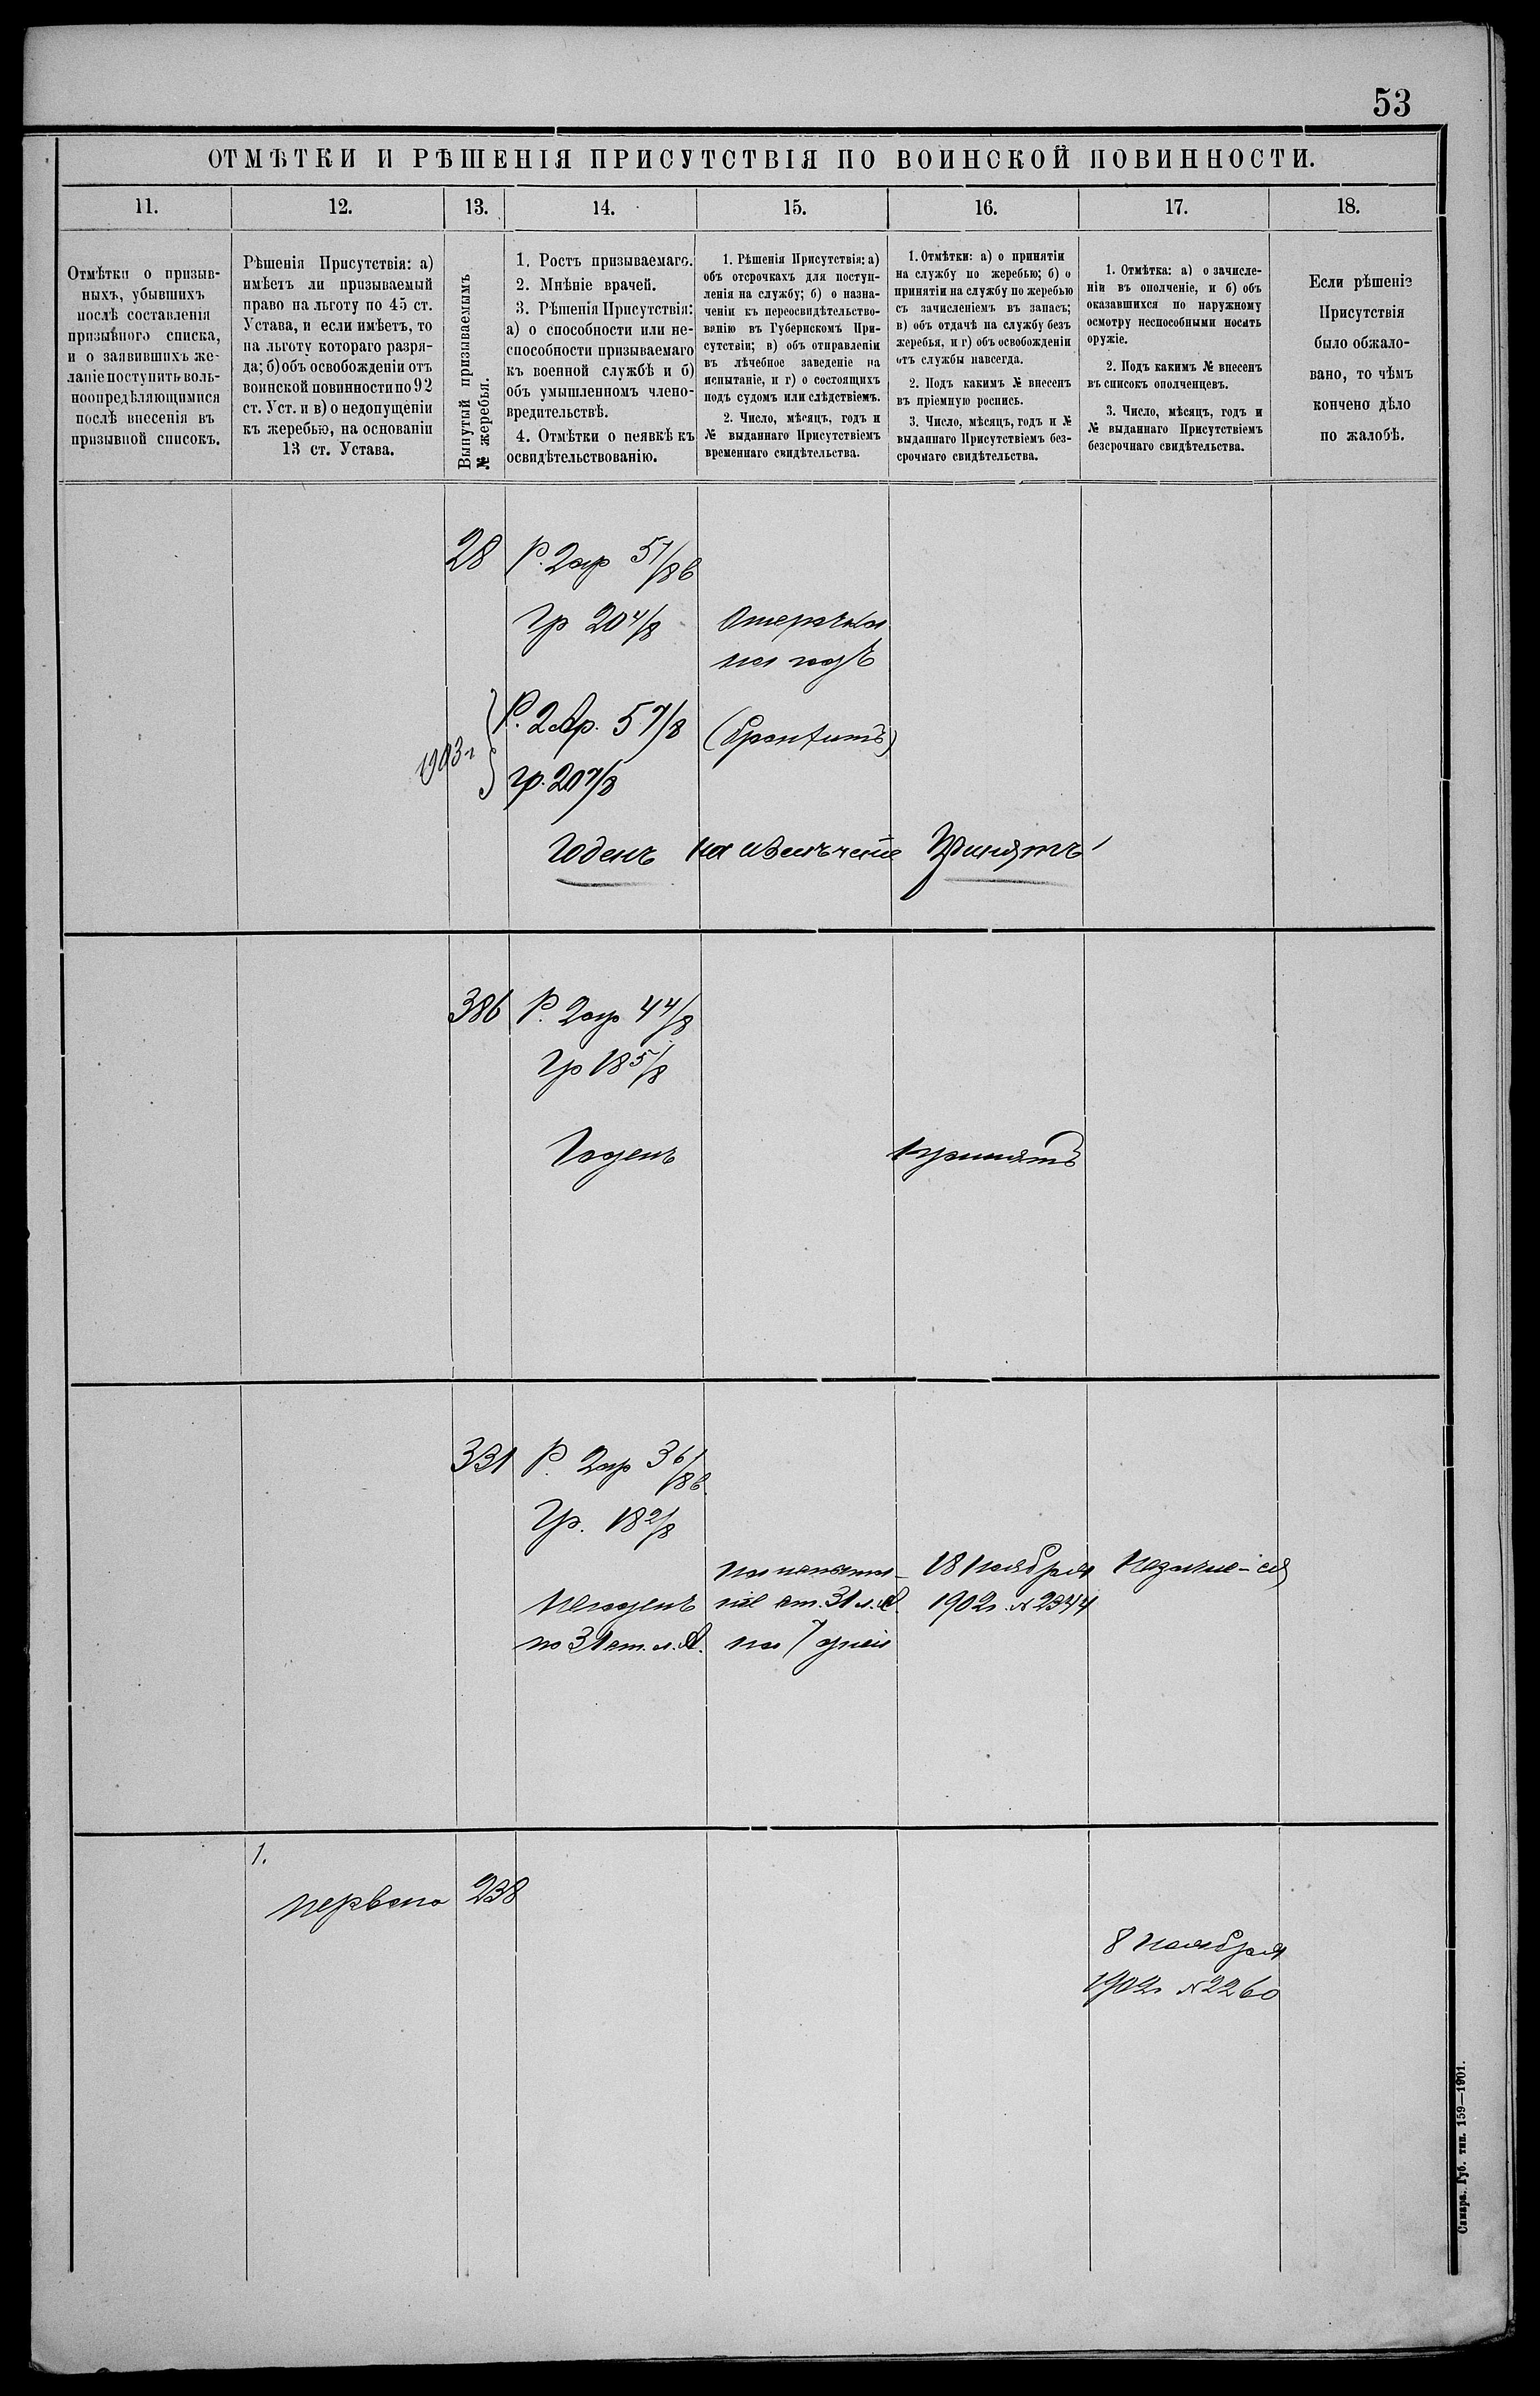 53
ОТМѢТКИ И РѢШЕНІЯ ПРИСУТСТВІЯ ПО ВОИНСКОЙ ПОВИННОСТИ.
11.
12.
13.
14.
15.
16.
17.
18.
Отмѣтки о призыв-
ныхъ, убывшихъ
послѣ составленія
призывного списка,
и о заявившихъ же-
ланіе поступить воль-
ноопредѣляющимися
послѣ внесенія въ
призывной списокъ.
Рѣшенія Присутствія: а)
имѣетъ ли призываемый
право на льготу по 45 ст.
Устава, и если имѣетъ, то
на льготу котораго разря-
да; б) объ освобожденіи отъ
воинской повинности по 92
ст. Уст. и в) о недопущеніи
къ жеребью, на основаніи
13 ст. Устава.
Вынутый призываемымъ
№ жеребья.
1. Ростъ призываемаго.
2. Мнѣніе врачей.
3. Рѣшенія Присутствія:
а) о способности или не-
способности призываемаго
къ военной службѣ и б)
объ умышленномъ члено-
вредительствѣ.
4. Отмѣтки о неявкѣ къ
освидѣтельствованію.
1. Рѣшенія Присутствія: а)
объ отсрочкахъ для поступ-
ленія на службу; б) о назна-
ченіи къ переосвидѣтельство-
ванію въ Губернскомъ При-
сутствіи; в) объ отправленіи
въ лѣчебное заведеніе на
испытаніе, и г) о состоящихъ
подъ судомъ или слѣдствіемъ.
2. Число, мѣсяцъ, годъ и
№ выданнаго Присутствіемъ
временнаго свидѣтельства.
1. Отмѣтки: а) о принятіи
на службу по жеребью; б) о
принятіи на службу по жеребью
съ зачисленіемъ въ запасъ;
в) объ отдачѣ на службу безъ
жеребья, и г) объ освобожденіи
отъ службы навсегда.
2. Подъ какимъ № внесенъ
въ пріемную роспись.
3. Число, мѣсяцъ, годъ и №
выданнаго Присутствіемъ без-
срочнаго свидѣтельства.
1. Отмѣтка: а) о зачисле-
ніи въ ополченіе, и б) объ
оказавшихся по наружному
осмотру неспособными носить
оружіе.
2. Подъ какимъ № внесенъ
въ списокъ ополченцевъ.
3. Число, мѣсяцъ, годъ и
№ выданнаго Присутствіемъ
безсрочнаго свидѣтельства.
Если рѣшеніе
Присутствія
было обжало-
вано, то чѣмъ
кончено дѣло
по жалобѣ.
28 Р. 2ар 5 1/8 в
Гр 20 4/8 Отсрочка
на годъ
1903 г Р. 2 Ар. 5 7/8 (бронхитъ)
гр. 20 7/8
Годенъ Принятъ
386 Р. 2ар 4 4/8
Гр 18 5/8
Годенъ принятъ
331 Р. 2ар 3 6/8 в.
Гр. 18 2/8
на испыта- 18 ноября
Негоденъ ніе ст. 31 л. А. 1902 г. № 2344
по 31 ст. л. А. на 7 дней
1.
перваго 238
8 ноября
1902 г № 2260
Самара. Губ. тип. 159—1901.